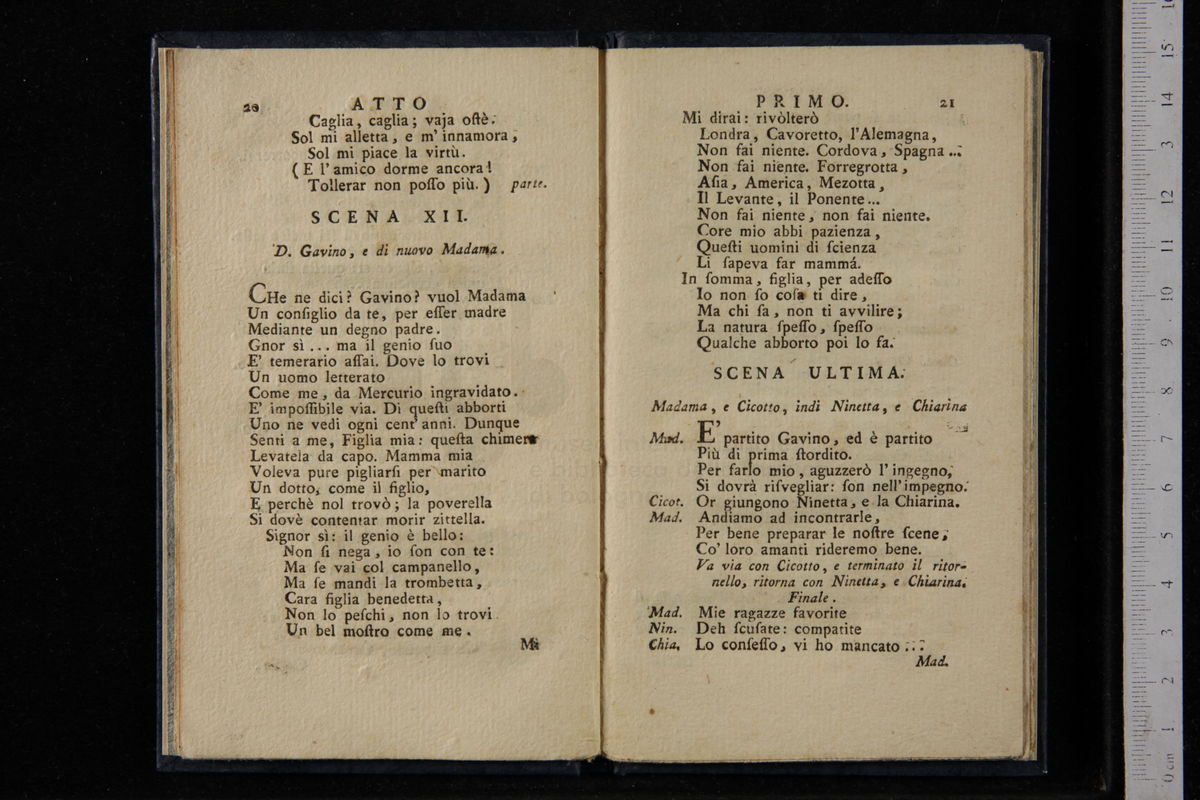 20 ATTO
Caglia, caglia; vaja oſtè.
Sol mi alletta, e m' innamora,
Sol mi piace la virtù.
( E l' amico dorme ancora!
Tollerar non poſſo più. ) parte.
SCENA XII.
D. Gavino, e di nuovo Madama.
CHe ne dici? Gavino? vuol Madama
Un conſiglio da te, per eſſer madre
Mediante un degno padre.
Gnor sì ... ma il genio ſuo
E' temerario aſſai. Dove lo trovi
Un uomo letterato
Come me, da Mercurio ingravidato.
E' impoſſibile via. Di queſti abborti
Uno ne vedi ogni cent' anni. Dunque
Senti a me, Figlia mia: queſta chimera
Levatela da capo. Mamma mia
Voleva pure pigliarſi per marito
Un dotto, come il figlio,
E perchè nol trovò; la poverella
Si dovè contentar morir zittella.
Signor sì: il genio è bello:
Non ſi nega, io ſon con te:
Ma ſe vai col campanello,
Ma ſe mandi la trombetta,
Cara figlia benedetta,
Non lo peſchi, non lo trovi
Un bel moſtro come me.
Mi
PRIMO. 21
Mi dirai: rivòlterò
Londra, Cavoretto, l'Alemagna,
Non fai niente. Cordova, Spagna ...
Non fai niente. Forregrotta,
Aſia, America, Mezotta,
Il Levante, il Ponente...
Non fai niente, non fai niente.
Core mio abbi pazienza,
Queſti uomini di ſcienza
Li ſapeva far mammá.
In ſomma, figlia, per adeſſo
Io non ſo coſa ti dire,
Ma chi ſa, non ti avvilire;
La natura ſpeſſo, ſpeſſo
Qualche abborto poi lo fa.
SCENA ULTIMA.
Madama, e Cicotto, indi Ninetta, e Chiarina
Mad. E' partito Gavino, ed è partito
Più di prima ſtordito.
Per farlo mio, aguzzerò l' ingegno,
Si dovrà riſvegliar: ſon nell' impegno.
Cicot. Or giungono Ninetta, e la Chiarina.
Mad. Andiamo ad incontrarle,
Per bene preparar le noſtre ſcene,
Co' loro amanti rideremo bene.
Va via con Cicotto, e terminato il ritor-
nello, ritorna con Ninetta, e Chiarina.
Finale.
Mad. Mie ragazze favorite
Nin. Deh ſcuſate: compatite
Chia. Lo confeſſo, vi ho mancato ...
Mad.